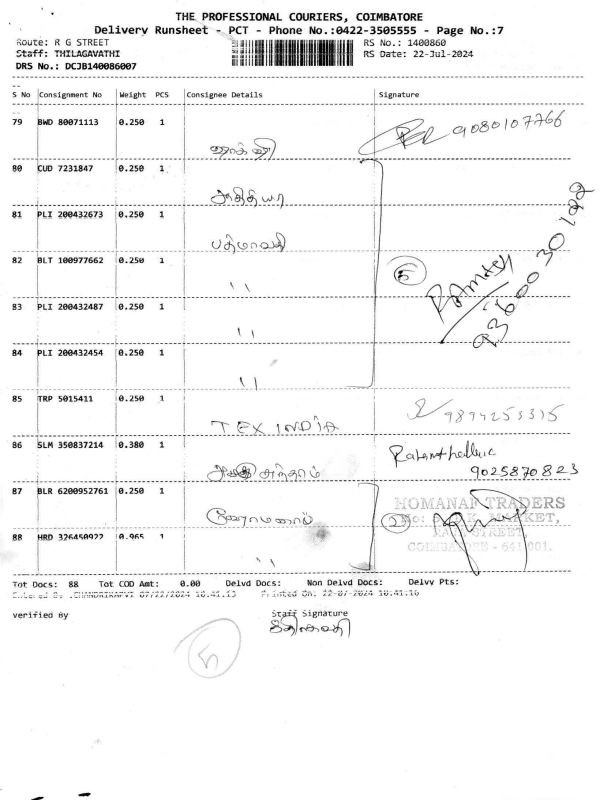 THE PROFESSIONAL COURIERS, COIMBATORE
Delivery Runsheet - PCT - Phone No.:0422-3505555 - Page No.:7
Route: R G STREET RS No.: 1400860
Staff: THILAGAVATHI RS Date: 22-Jul-2024
DRS No.: DCJB140086007
S No Consignment No Weight PCS Consignee Details Signature
79 BWD 80071113 0.250 1 9080107766
80 CUD 7231847 0.250 1
ஆதித்யா
81 PLI 200432673 0.250 1
பத்மாவதி
82 BLT 100977662 0.250 1 5
" RAMESH
83 PLI 200432487 0.250 1 93600 30122
"
84 PLI 200432454 0.250 1
"
85 TRP 5015411 0.250 1
TEX INDIA
86 SLM 350837214 0.380 1
9025870823
87 BLR 6200952761 0.250 1 HOMANAN TRADERS
2 MARKET,
88 HRD 326450922 0.965 1 STREET,
" COIMBATORE - 641 001.
Tot Docs: 88 Tot COD Amt: 0.00 Delvd Docs: Non Delvd Docs: Delvy Pts:
Entered By :CHANDRIKAPVT 07/22/2024 10.41.13 Printed On: 22-07-2024 10.41.16
verified By Staff Signature
5